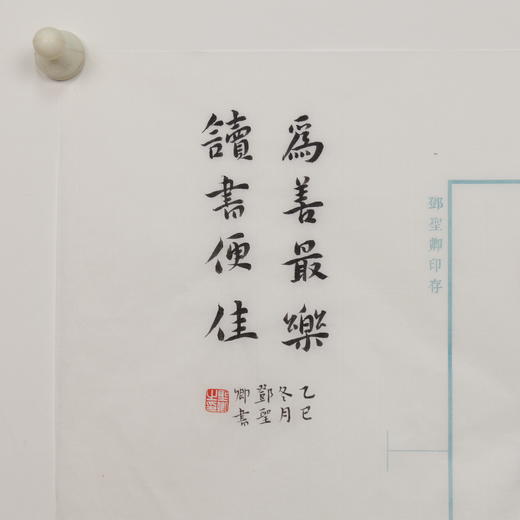 鄧聖卿印存
為善最樂
讀書便佳
乙巳
冬月
鄧聖
卿書